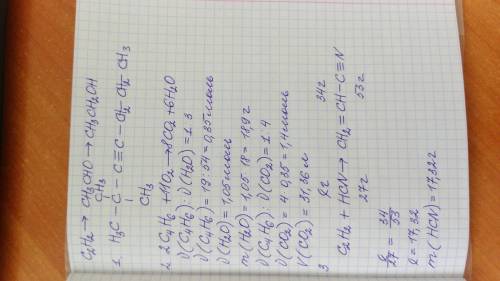 C₂H₂ → CH₃CHO → CH₃CH₂OH
CH₃
1. H₃C – C – C ≡ C – CH₂ – CH₂ – CH₃
CH₃
2. 2C₄H₆ + 11O₂ → 8CO₂ + 6H₂O
ν(C₄H₆) : ν(H₂O) = 1:3
ν(C₄H₆) = 19:54 = 0,35 моль
ν(H₂O) = 1,05 моль
m(H₂O) = 1,05 · 18 = 18,9 г
ν(C₄H₆) : ν(CO₂) = 1:4
ν(CO₂) = 4 · 0,35 = 1,4 моль
V(CO₂) = 31,36 л
3 34г
C₂H₂ + HCN → CH₂ = CH – C ≡ N
27г 53г
/27 = 34/53
= 17,32
m(HCN) = 17,32г